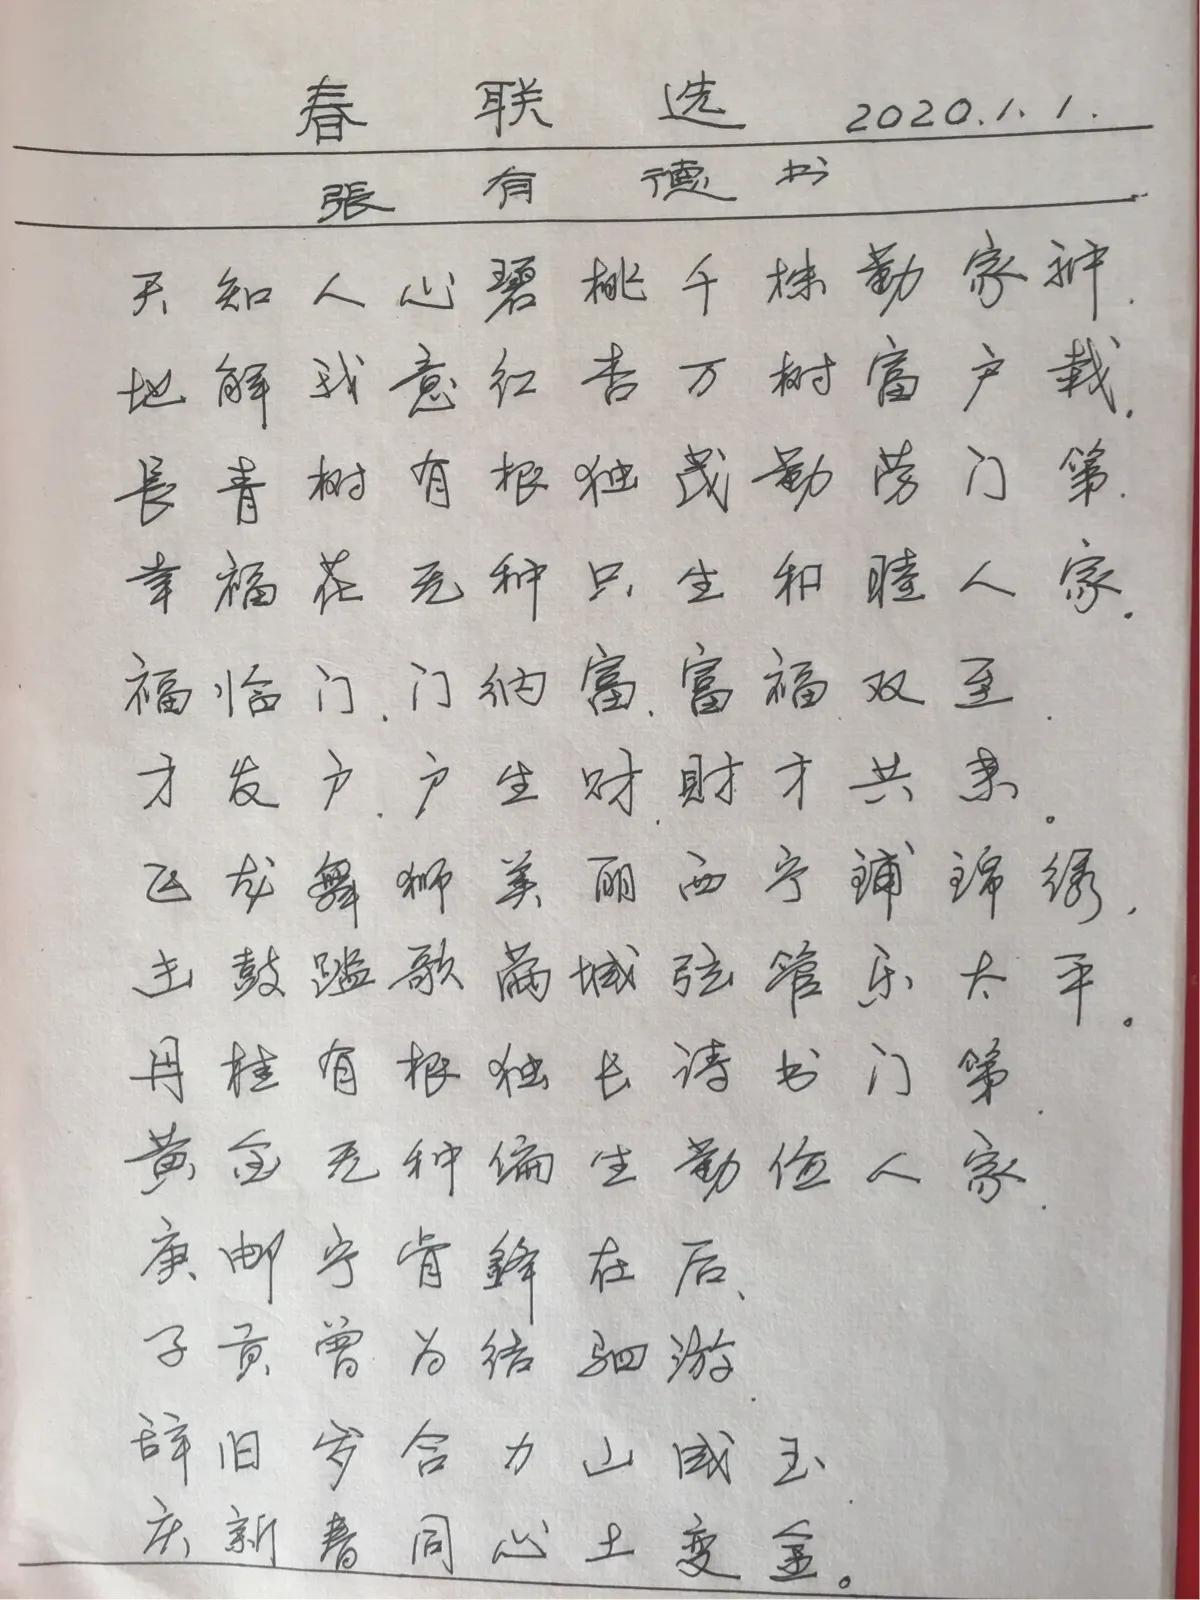 春联选 2020.1.1.
張有德书
天知人心碧桃千株勤家种.
地解我意红杏万树富户栽.
長青树有根独茂勤劳门第.
幸福花无种只生和睦人家.
福临门.门纳富.富福双至.
才发户.户生财.財才共来。
飞龙舞狮美丽西宁铺锦绣,
击鼓踏歌满城弦管乐太平。
丹桂有根独长诗书门第.
黄金无种偏生勤俭人家.
庚邮宁肯鋒在后、
子贡曾为结驷游.
辞旧岁合力山成玉.
庆新春同心土变金。